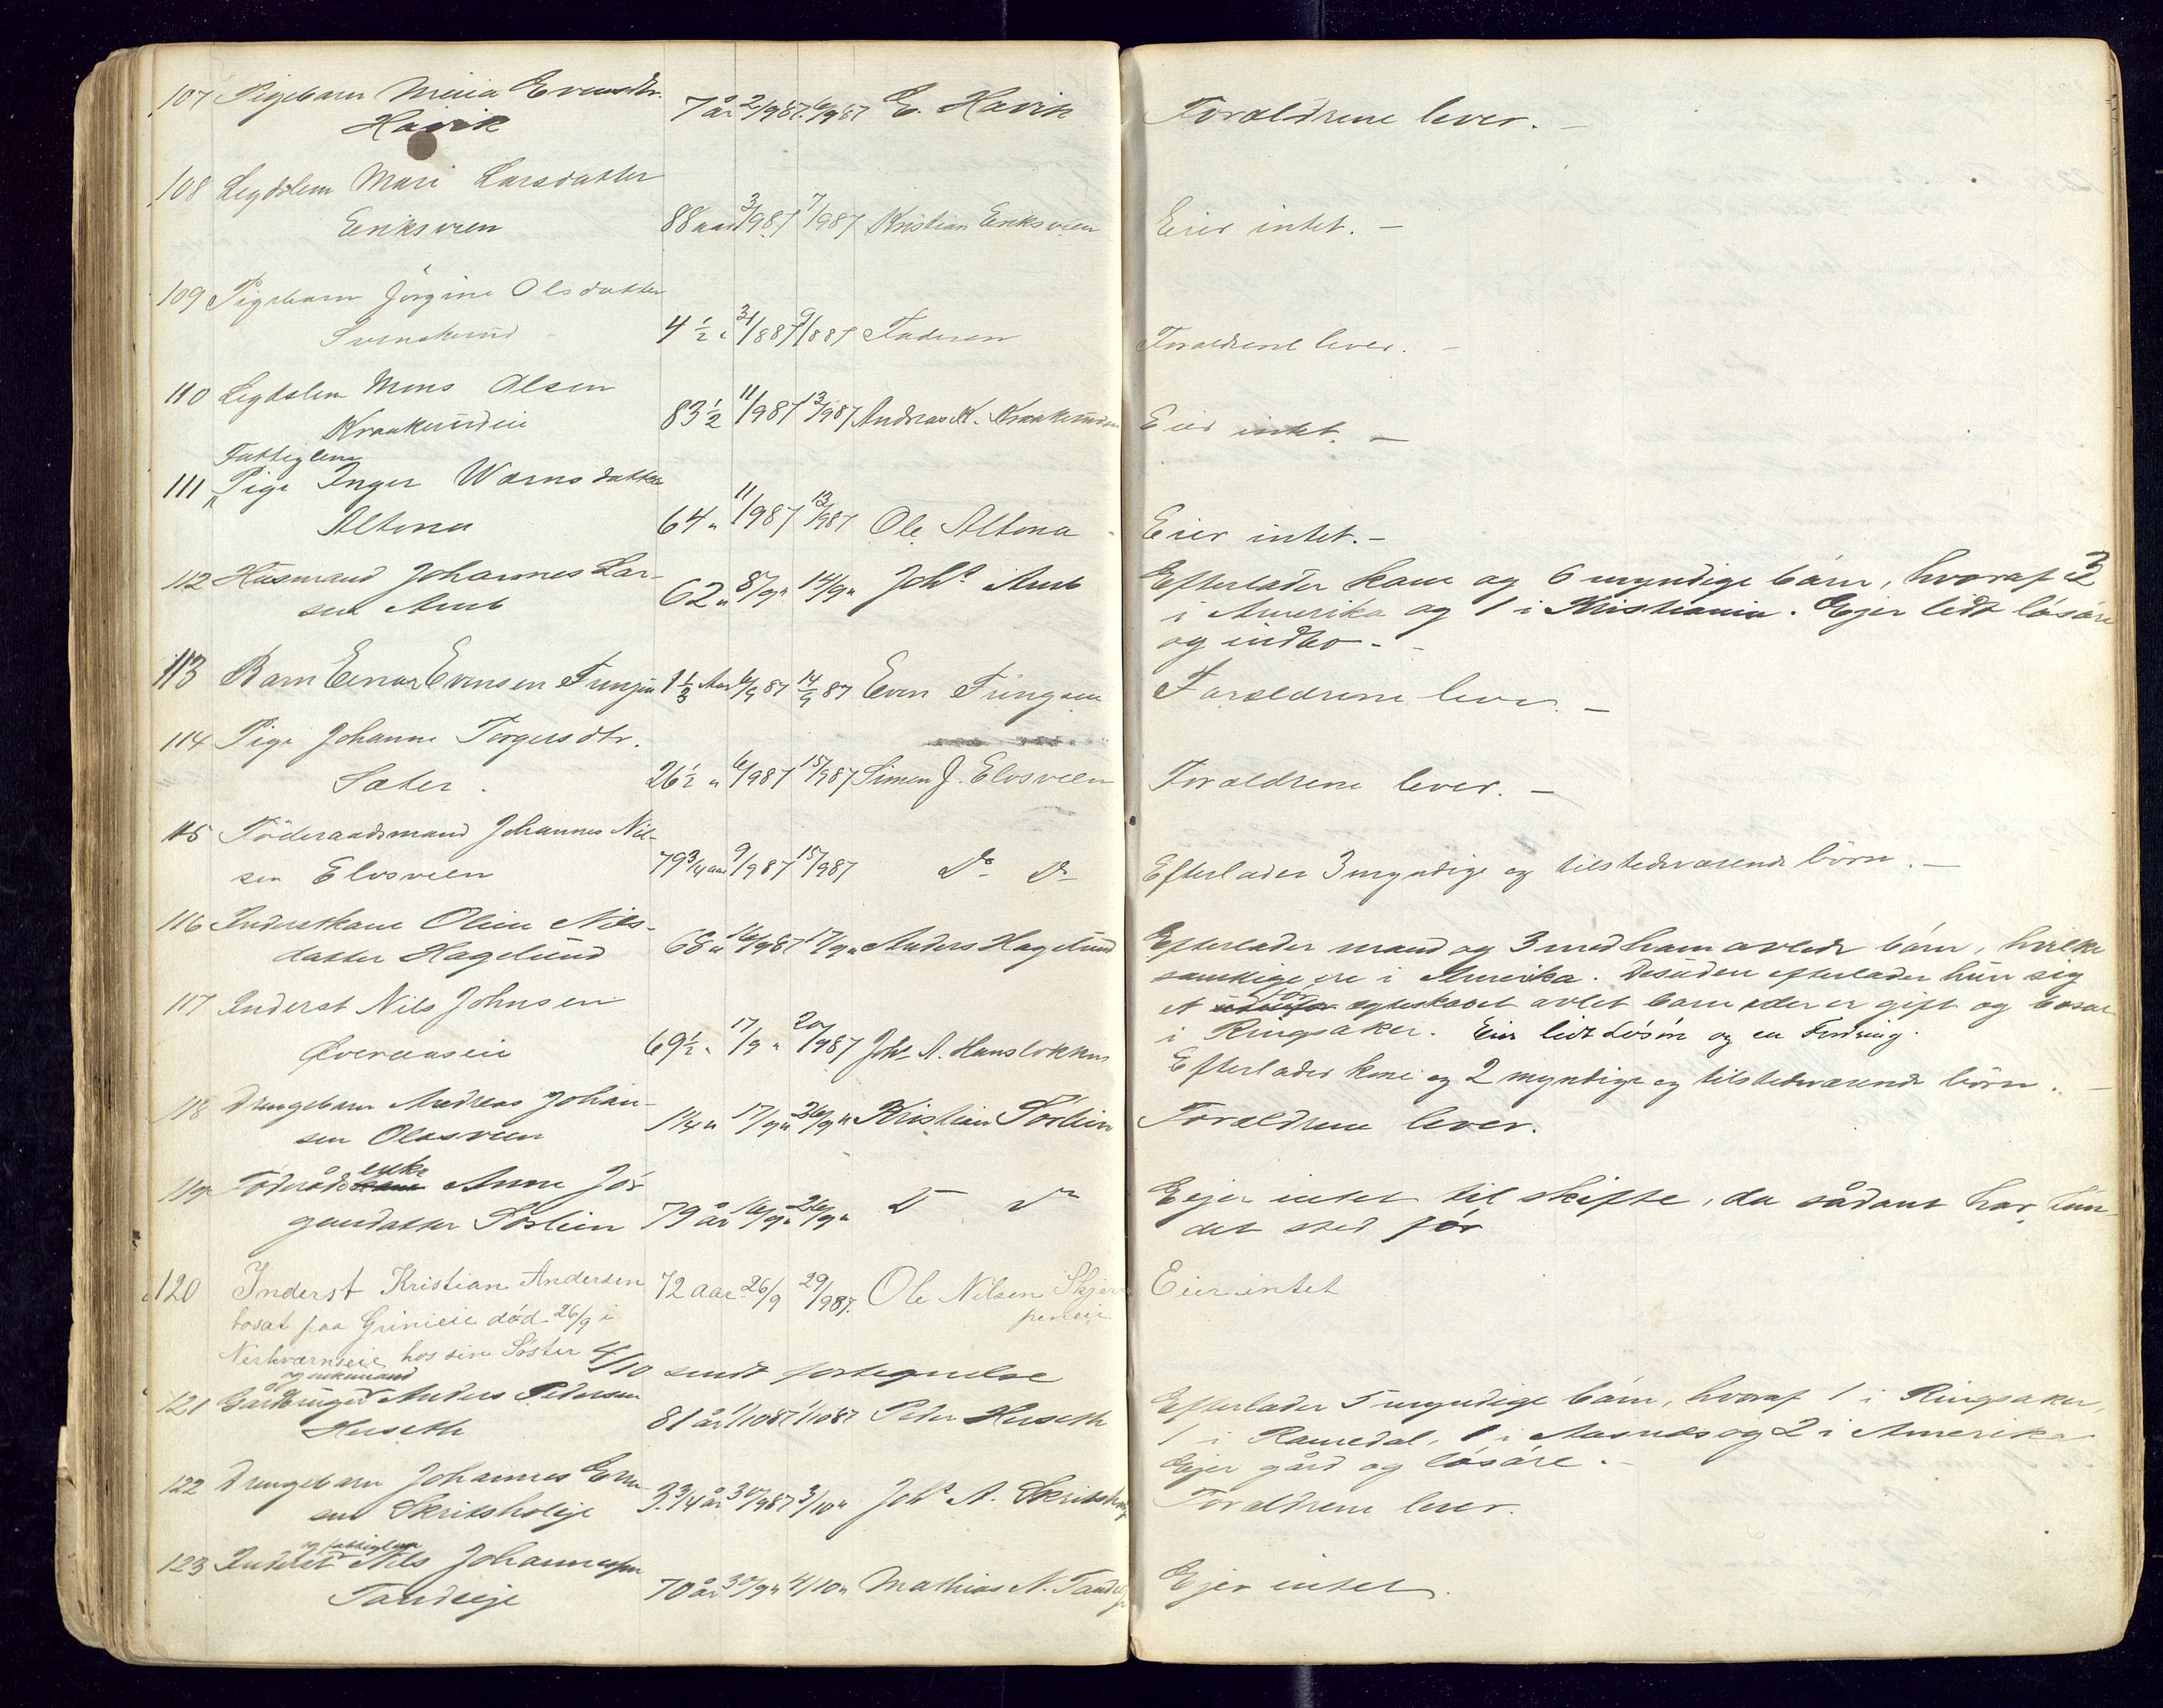 107 Pigebarn Maria Evensdtr. 7 år 2/9 87. 6/9 87 E. Havik Forældrene lever. –
Havik
108 Legdslem Mari Larsdatter
Eriksveen 88 aar 3/9 87 7/9 87 Kristian Eriksveen Eier intet. –
109 Pigebarn Jörgine Olsdatter
Svenskerud 4 1/2 " 31/8 87 9/8 87 Faderen Forældrene lever. –
110 Legdslem Mons Olsen
Kraakerudeie 83 1/2 11/9 87 13/9 87 Andreas K. Kraakeruden Eier intet. –
Fattiglem
111 Pige Inger Warnsdatter
Altona 64 " 11/9 87 13/9 87 Ole Altona Eier intet. –
112 Husmand Johannes Lar- 62 " 8/9 " 14/9 " Johs Amb Efterlader kone og 6 myndige børn, hvoraf 3
sen Amb i Amerika og 1 i Kristiania. Ejer lidt løsøre
og indbo. –
113 Barn Einar Evensen 1 1/3 Aar 6/9 87 14/9 87 Even Forældrene lever. –
114 Pige Johanne Torgersdtr.
Sæter. 26 1/2 " 6/9 87 15/9 87 Simen J. Elvsveen Forældrene lever. –
115 Föderaadsmand Johannes Nil-
sen Elvsveen 79 3/4 aar 9/9 87 15/9 87 Do Do Efterlader 3 myndige og tilstedeværende börn. –
116 Inderstkone Oline Nils- 68 " 16/9 87 17/9 " Anders Hagelund Efterlader mand og 3 med ham avlede børn, hvilke
datter Hagelund samtlige ere i Amerika. Desuden efterlader hun sig
117 Inderst Nils Johnsen et udenfor ægteskabet avlet barn der er gift og bosat
i Ringsaker. Eier lidt Løsøre og en Fordring.
69 1/2 " 17/9 " 20/9 87 Johs A. Hanslökken Efterlader kone og 2 myndige og tilstedeværende börn. –
118 Drengebarn Andreas Johan- 1 1/4 " 17/9 " 26/9 " Kristian Sørlien Forældrene lever.
sen Olasveen
119 Føderådsenke Anne Jör-
gensdatter Sørlien 79 år 16/9 " 26/9 " Do Do Ejer intet til skifte, da sådant har fun-
det sted før
120 Inderst Kristian Andersen 72 aar 26/9 29/9 87. Ole Nilsen Skjer- Eier intet
bosat paa Grinieie död 26/9 i peneie
Nerkværnseie hos sin Søster 4/10 sendt fortegnelse
og enkemand
121 Gårdbruger Anders Pedersen 81 år 1/10 87 1/10 87 Peter Huseth Efterlader 5 myndige børn, hvoraf 1 i Ringsaker,
Huseth 1 i Romedal, 1 i Aasnes og 2 i Amerika
Ejer gård og løsøre. –
122 Drengebarn Johannes Even-
sen Skritsholeje 3 3/4 år 30/9 87 3/10 " Johs A. Forældrene lever.
og fattiglem
123 Inderst Nils Johannessen
Tandeje 70 år 30/9 " 4/10 " Mathias N. Ejer intet.